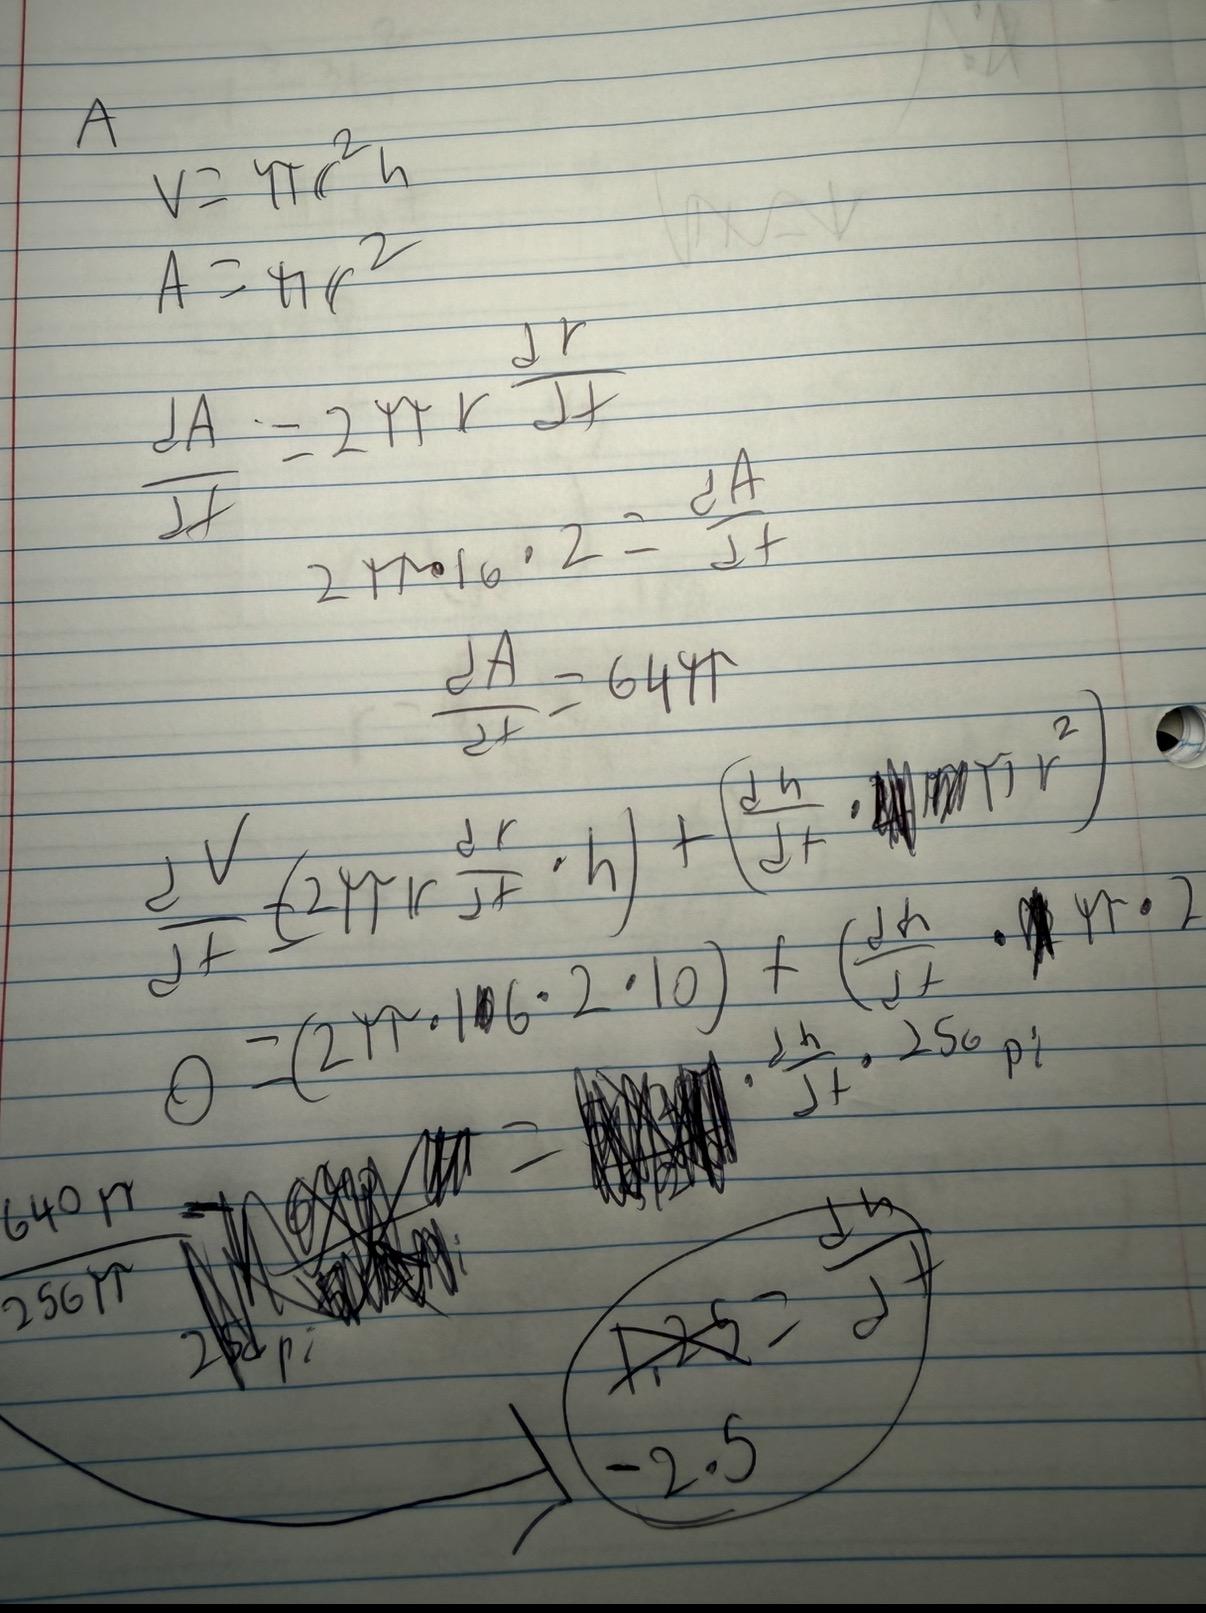 A
V = πr²h
A = πr²
dA/dt = 2πr dr/dt
2π·16·2 = dA/dt
dA/dt = 64π
dV/dt = (2πr dr/dt · h) + (dh/dt · πr²)
0 = (2π·16·2·10) + (dh/dt · π·2
= · dh/dt · 256 pi
640π/256π
pi
1.25 = dh/dt
-2.5